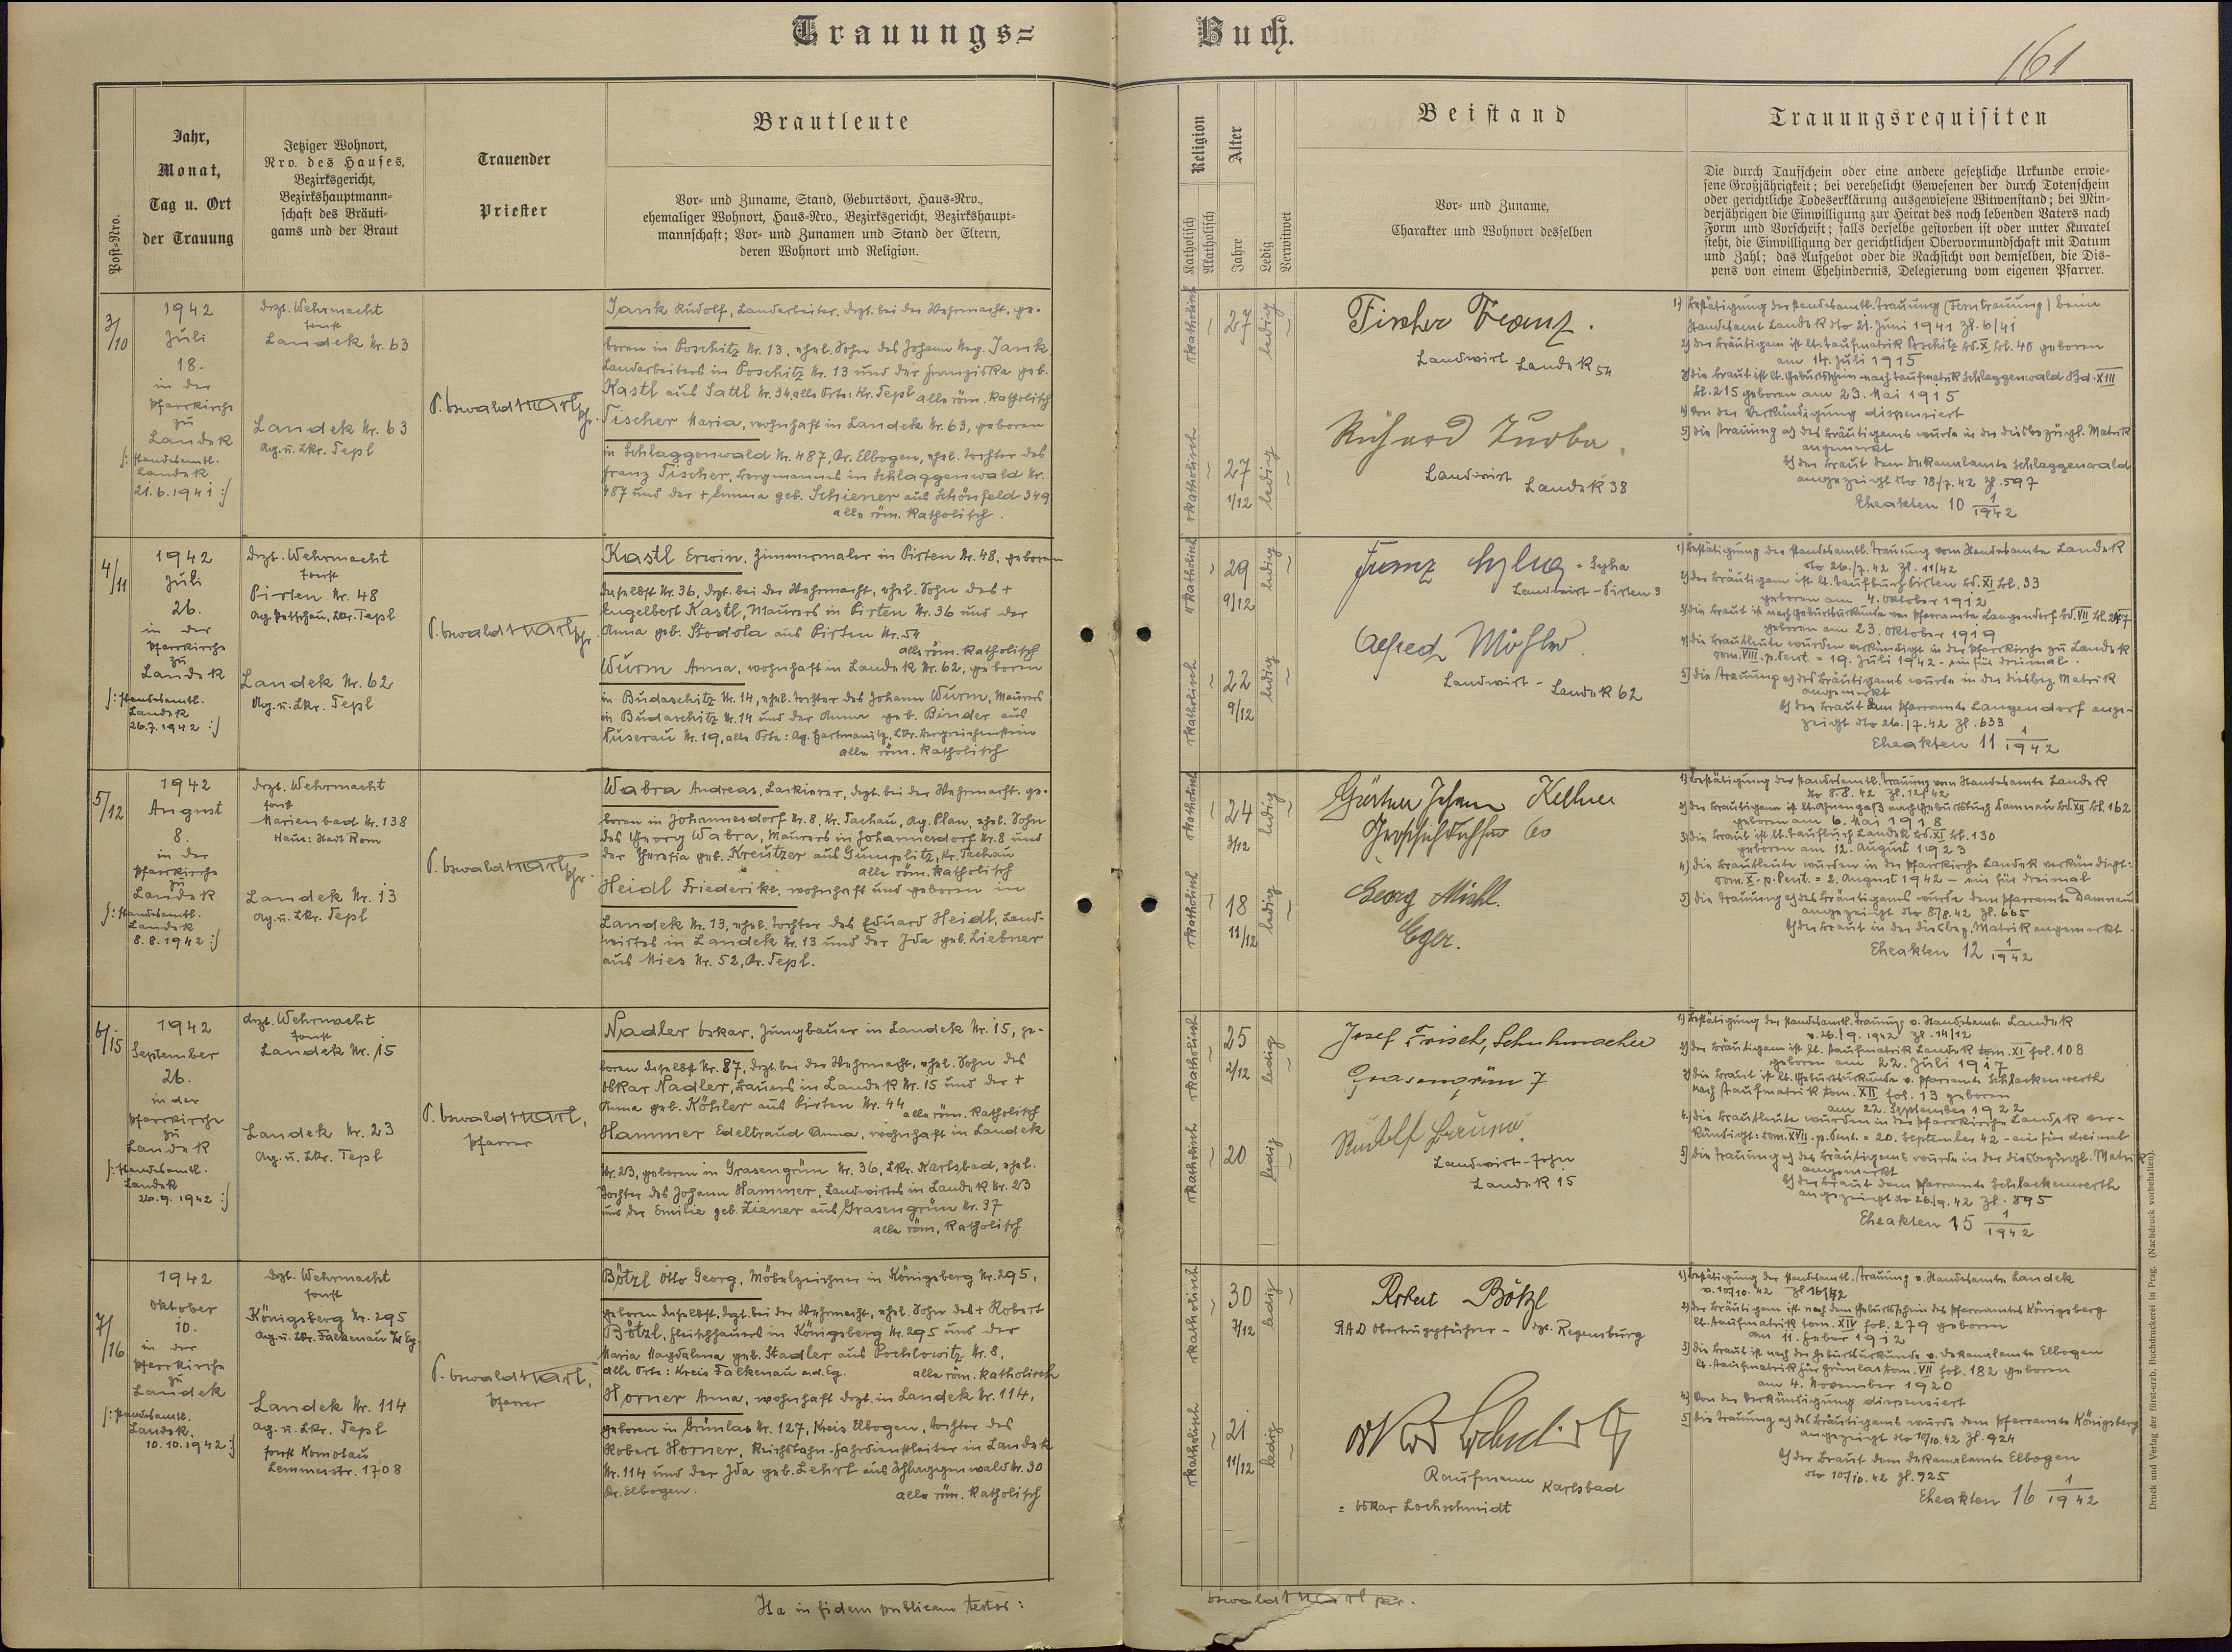 Trauungs=
Buch.
161
Post-Nro.
Jahr,
Monat,
Tag u. Ort
der Trauung
Jetziger Wohnort,
Nro. des Hauses,
Bezirksgericht,
Bezirkshauptmann-
schaft des Bräuti-
gams und der Braut
Trauender
Priester
Brautleute
Vor- und Zuname, Stand, Geburtsort, Haus-Nro.,
ehemaliger Wohnort, Haus-Nro., Bezirksgericht, Bezirkshaupt-
mannschaft; Vor- und Zunamen und Stand der Eltern,
deren Wohnort und Religion.
Religion
Katholisch
Akatholisch
Alter
Jahre
Ledig
Verwitwet
Beistand
Vor- und Zuname,
Charakter und Wohnort desselben
Trauungsrequisiten
Die durch Taufschein oder eine andere gesetzliche Urkunde erwie-
sene Großjährigkeit; bei verehelicht Gewesenen der durch Totenschein
oder gerichtliche Todeserklärung ausgewiesene Witwenstand; bei Min-
derjährigen die Einwilligung zur Heirat des noch lebenden Vaters nach
Form und Vorschrift; falls derselbe gestorben ist oder unter Kuratel
steht, die Einwilligung der gerichtlichen Obervormundschaft mit Datum
und Zahl; das Aufgebot oder die Nachsicht von demselben, die Dis-
pens von einem Ehehindernis, Delegierung vom eigenen Pfarrer.
3/10
1942
Juli
18.
in der
Pfarrkirche
zu
Landek
/: standesamtl.
Landek
21.6.1941 :/
drzt. Wehrmacht
sonst
Landek Nr. 63
Landek Nr. 63
Ag. u. Lkr. Tepl
P. Oswald
Jank Rudolf, Landarbeiter, drzt. bei der Wehrmacht, ge-
boren in Poschitz Nr. 13, ehel. Sohn des Johann Jank
Landarbeiters in Poschitz Nr. 13 und der Franziska geb.
Kastl aus Sattl Nr. 34, alle Orte: Kr. Tepl alle röm. katholisch
Tischer Maria, wohnhaft in Landek Nr. 63, geboren
in Schlaggenwald Nr. 487, Kr. Elbogen, ehel. Tochter des
Franz Tischer, Bergmannes in Schlaggenwald Nr.
487 und der + Emma geb. Schiener aus Schönfeld 349
alle röm. katholisch.
rkatholisch
27
ledig
rkatholisch
27
1/12
ledig
Fischer Franz.
Landwirt Landek 54
Richard
Landwirt Landek 38
1) Bestätigung der standesamtl. Trauung (Ferntrauung) beim
Standesamt Landek dto 21. Juni 1941 Zl. 6/41
2) der Bräutigam ist lt. Taufmatrik Poschitz Bd. X Bl. 40 geboren
am 14. Juli 1915
3) die Braut ist lt. Geburtsschein nach Taufmatrik Schlaggenwald Bd. XIII
Bl. 215 geboren am 23. Mai 1915
4) Von der Verkündigung dispensiert
5) die Trauung a) des Bräutigams wurde in der diesbezügl. Matrik
angemerkt
b) der Braut dem Dekanalamte Schlaggenwald
angezeigt dto 18/7. 42 Zl. 597
Eheakten 10 1/1942
4/11
1942
Juli
26.
in der
Pfarrkirche
zu
Landek
/: standesamtl.
Landek
26.7.1942 :/
drzt. Wehrmacht
sonst
Pirten Nr. 48
Ag. Petschau, Lkr. Tepl
Landek Nr. 62
Ag. u. Lkr. Tepl
P. Oswald
Kastl Erwin, Zimmermaler in Pirten Nr. 48, geboren
daselbst Nr. 36, drzt. bei der Wehrmacht, ehel. Sohn des +
Engelbert Kastl, Maurers in Pirten Nr. 36 und der
Anna geb. Stodola aus Pirten Nr. 54
alle röm. katholisch
Wurm Anna, wohnhaft in Landek Nr. 62, geboren
in Budaschitz Nr. 14, ehel. Tochter des Johann Wurm, Maurers
in Budaschitz Nr. 14 und der Anna geb. Binder aus
Nuserau Nr. 19, alle Orte: Ag. Hartmanitz, Lkr. Bergreichenstein
alle röm. katholisch
rkatholisch
29
9/12
ledig
rkatholisch
22
9/12
ledig
Franz Syha = Syha
Landwirt - Pirten 3
Alfred
Landwirt - Landek 62
1) Bestätigung der standesamtl. Trauung vom Standesamte Landek
dto 26./7. 42 Zl. 11/42
2) der Bräutigam ist lt. Taufbuch Pirten Bd. XI Bl. 93
geboren am 4. Oktober 1912
3) die Braut ist nach Geburtsurkunde vom Pfarramte Langendorf Bd. VII
geboren am 23. Oktober 1919
4) die Brautleute wurden verkündigt in der Pfarrkirche zu Landek
Dom. VIII. p. Pent. = 19. Juli 1942 - ein für dreimal.
5) die Trauung a) des Bräutigams wurde in der diesbez. Matrik
angemerkt
b) der Braut dem Pfarramte Langendorf ange-
zeigt dto 26./7. 42 Zl. 633
Eheakten 11 1/1942
5/12
1942
August
8.
in der
Pfarrkirche
zu
Landek
/: standesamtl.
Landek
8.8.1942 :/
drzt. Wehrmacht
sonst
Marienbad Nr. 138
Haus: Stadt Rom
Landek Nr. 13
Ag. u. Lkr. Tepl
P. Oswald
Wabra Andreas, Lackierer, drzt. bei der Wehrmacht, ge-
boren in Johannesdorf Nr. 8, Kr. Tachau, Ag. Plan, ehel. Sohn
des Georg Wabra, Maurers in Johannesdorf Nr. 8 und
der Theresia geb. Kreutzer aus Gumplitz, Kr. Tachau
alle röm. katholisch
Heidl Friederike, wohnhaft und geboren in
Landek Nr. 13, ehel. Tochter des Eduard Heidl, Land-
wirtes in Landek Nr. 13 und der Ida geb. Liebner
aus Mies Nr. 52, Kr. Tepl.
rkatholisch
24
3/12
ledig
rkatholisch
18
11/12
ledig
Gärtner Johann Kellner
60
Georg Michl.
Eger.
1) Bestätigung der standesamtl. Trauung vom Standesamte Landek
dto 8.8. 42 Zl. 12/42
2) der Bräutigam ist lt. Ahnenpaß nach Geburtsbuch Damnau Bd. XII Bl. 162
geboren am 6. Mai 1918
3) die Braut ist lt. Taufbuch Landek Bd. XI Bl. 130
geboren am 12. August 1923
4) die Brautleute wurden in der Pfarrkirche Landek verkündigt:
Dom. X. p. Pent. = 2. August 1942 - ein für dreimal
5) die Trauung a) des Bräutigams wurde dem Pfarramte Damnau
angezeigt dto 8/8. 42 Zl. 665
b) der Braut in der diesbez. Matrik angemerkt
Eheakten 12 1/1942
6/15
1942
September
26.
in der
Pfarrkirche
zu
Landek
/: standesamtl.
Landek
26.9.1942 :/
drzt. Wehrmacht
sonst
Landek Nr. 15
Landek Nr. 23
Ag. u. Lkr. Tepl
P. Oswald
Pfarrer
Nadler Oskar, Jungbauer in Landek Nr. 15, ge-
boren daselbst Nr. 87, drzt. bei der Wehrmacht, ehel. Sohn des
Oskar Nadler, Bauers in Landek Nr. 15 und der +
Anna geb. Köhler aus Pirten Nr. 44
alle röm. katholisch
Hammer Edeltraud Anna, wohnhaft in Landek
Nr. 23, geboren in Grasengrün Nr. 36, Lkr. Karlsbad, ehel.
Tochter des Johann Hammer, Landwirtes in Landek Nr. 23
und der Emilie geb. Ziener aus Grasengrün Nr. 37
alle röm. katholisch
rkatholisch
25
2/12
ledig
rkatholisch
20
ledig
Josef Frisch, Schuhmacher
Grasengrün 7
Rudolf
Landwirt-Sohn
Landek 15
1) Bestätigung der standesamtl. Trauung v. Standesamte Landek
v. 26./9. 1942 Zl. 14/12
2) der Bräutigam ist lt. Taufmatrik Landek tom. XI fol. 108
geboren am 22. Juli 1917
3) die Braut ist lt. Geburtsurkunde v. Pfarramte Schlackenwerth
nach Taufmatrik tom. XII fol. 13 geboren
am 22. September 1922
4.) die Brautleute wurden in der Pfarrkirche Landek ver-
kündigt: Dom. XVII. p. Pent. = 20. September 42 - ein für dreimal
5) die Trauung a) des Bräutigams wurde in der diesbezügl. Matrik
angemerkt
b) der Braut dem Pfarramte Schlackenwerth
angezeigt dto 26./9. 42 Zl. 895
Eheakten 15 1/1942
7/16
1942
Oktober
10.
in der
Pfarrkirche
zu
Landek
/: standesamtl.
Landek.
10.10.1942 :/
drzt. Wehrmacht
sonst
Königsberg Nr. 295
Ag. u. Lkr. Falkenau a/ Eg.
Landek Nr. 114
Ag. u. Lkr. Tepl
sonst Komotau
Lemmerstr. 1708
P. Oswald
Pfarrer
Bötzl Otto Georg, Möbelzeichner in Königsberg Nr. 295,
geboren daselbst, drzt. bei der Wehrmacht, ehel. Sohn des + Robert
Bötzl, Fleischhauers in Königsberg Nr. 295 und der
Maria Magdalena geb. Stadler aus Pochlowitz Nr. 8,
alle Orte: Kreis Falkenau a.d. Eg. alle röm. katholisch
Horner Anna, wohnhaft drzt. in Landek Nr. 114,
geboren in Grünlas Nr. 127, Kreis Elbogen, Tochter des
Robert Horner, Reichsbahn-Fahrdienstleiter in Landek
Nr. 114 und der Ida geb. Lehrl aus Schlaggenwald Nr. 30
Kr. Elbogen. alle röm. katholisch
rkatholisch
30
7/12
ledig
rkatholisch
21
11/12
ledig
Robert Bötzl
RAD Obertruppführer - drzt. Regensburg
Kaufmann Karlsbad
= Oskar Lochschmidt
1) Bestätigung der standesamtl. Trauung v. Standesamte Landek
v. 10/10. 42 Zl 16/42
2) der Bräutigam ist nach dem Geburtsschein des Pfarramtes Königsberg
lt. Taufmatrik tom. XIV fol. 279 geboren
am 11. Feber 1912
3) die Braut ist nach der Geburtsurkunde v. Dekanalamte Elbogen
lt. Taufmatrik für Grünlas tom. VII fol. 182 geboren
am 4. November 1920
4) Von der Verkündigung dispensiert
5) die Trauung a) des Bräutigams wurde dem Pfarramte Königsberg
angezeigt dto 10/10. 42 Zl. 924
b) der Braut dem Dekanalamte Elbogen
dto 10/10. 42 Zl. 925
Eheakten 16 1/1942
Ita in fidem publicam testor:
Oswald
Druck und Verlag der fürst-erzb. Buchdruckerei in Prag. (Nachdruck vorbehalten).